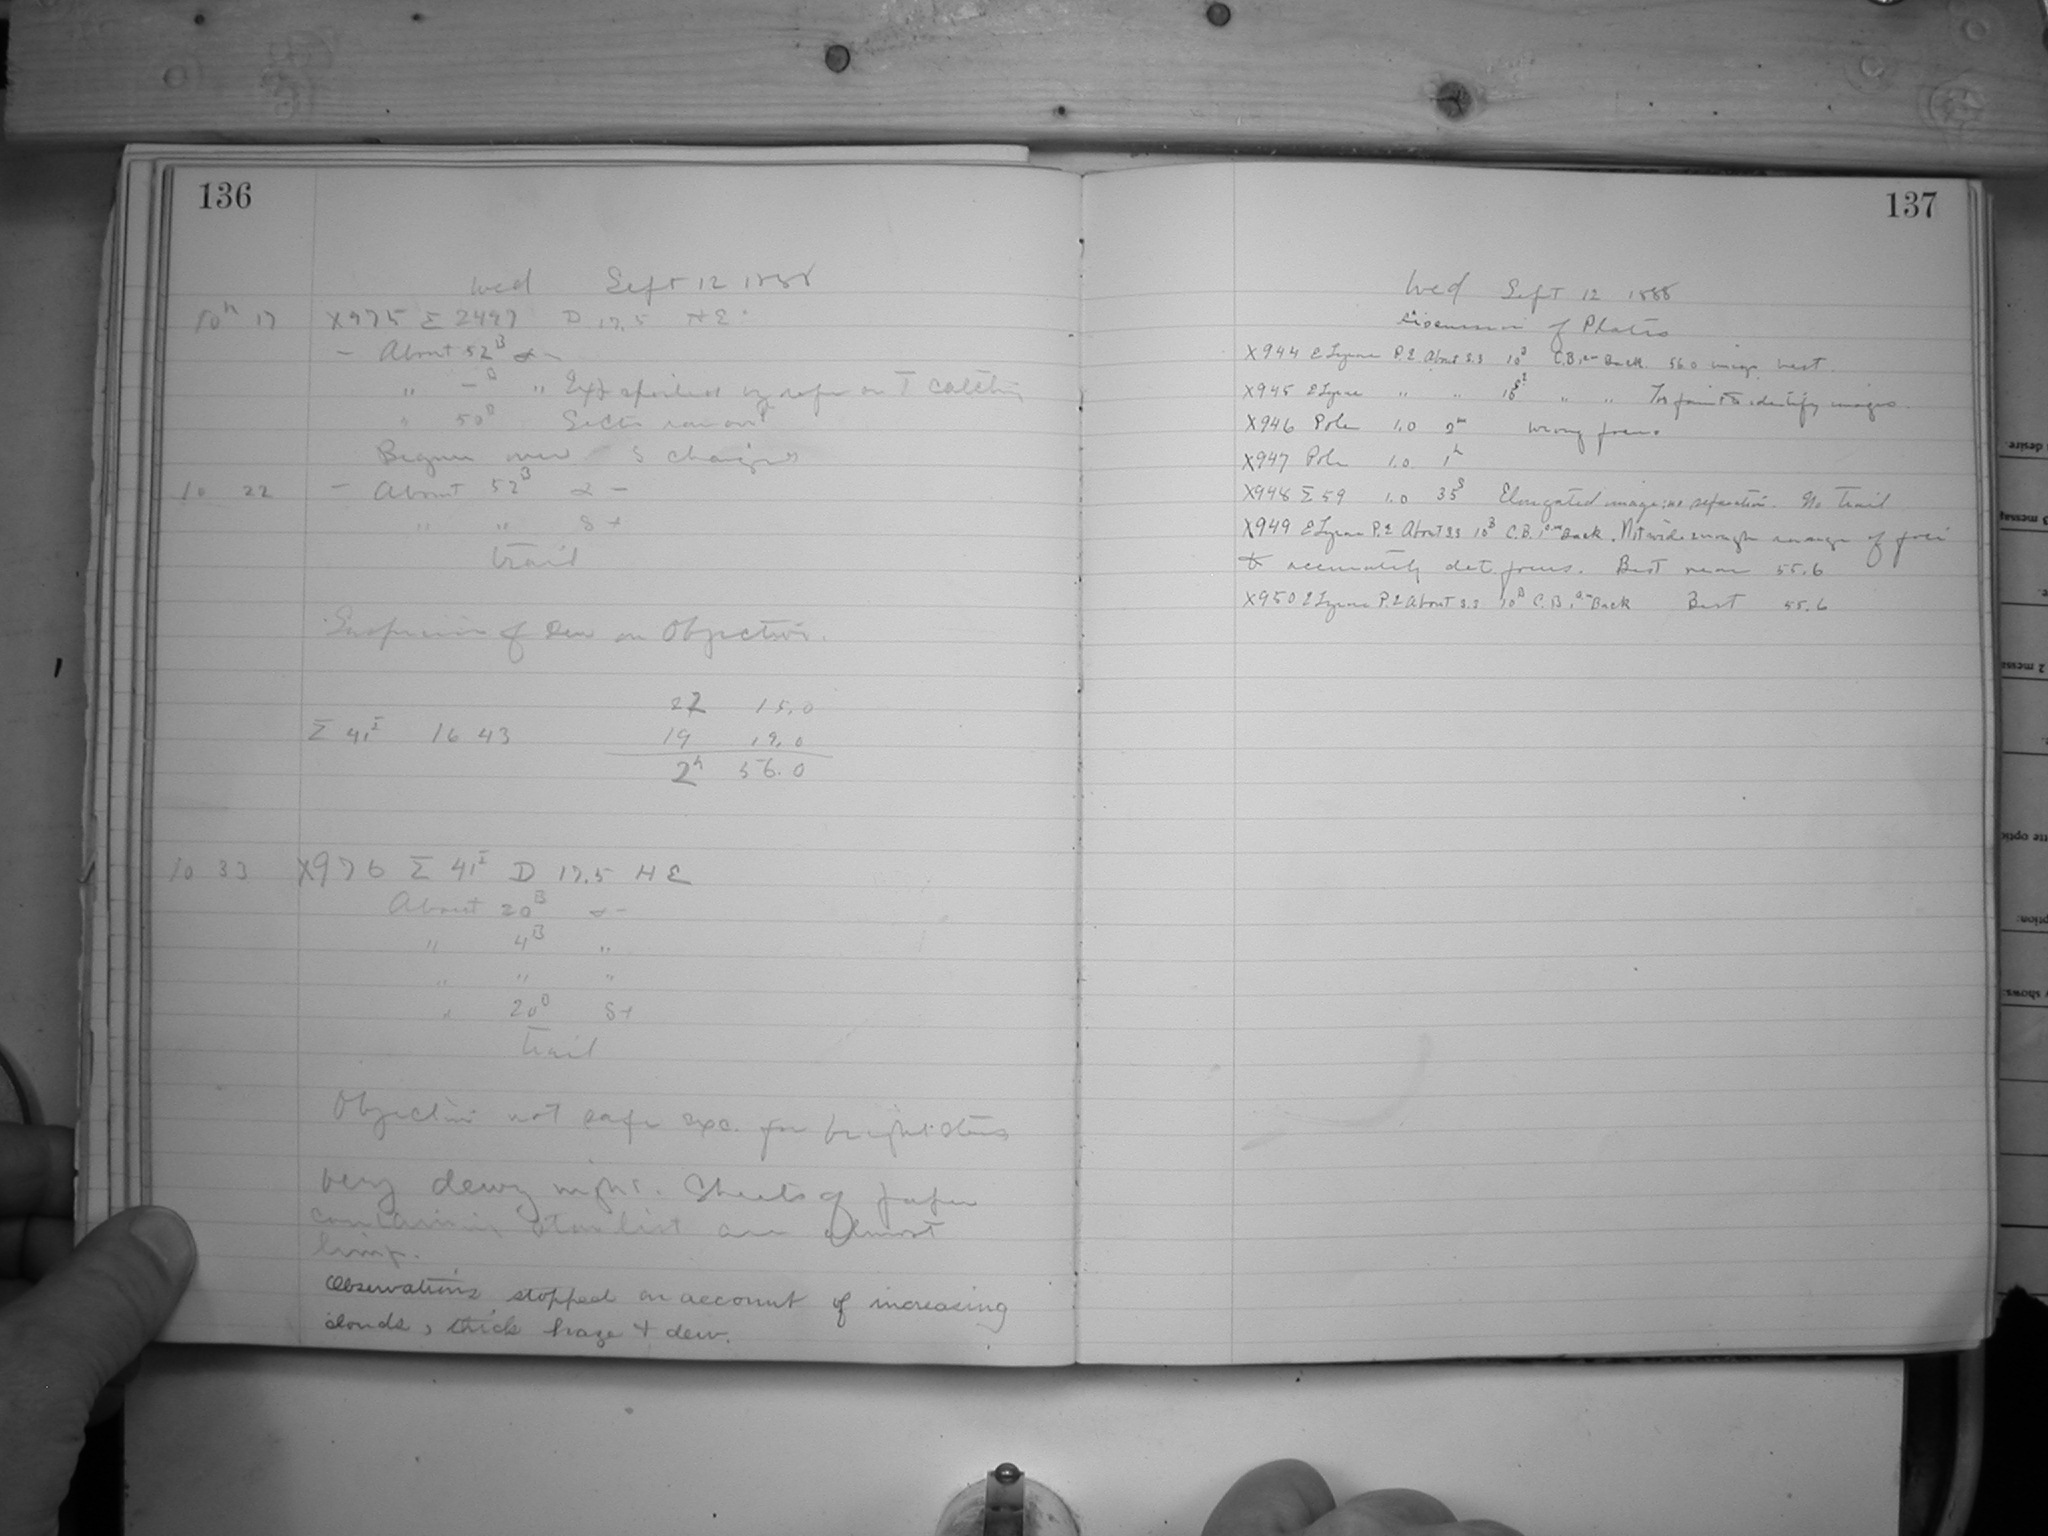 136
Wed Sept 12 1888
10h 17 X975 Σ 2497 D 17.5 H E
- About 52B α -
" - B " Exp spoiled by rope on T catching
" 50B Sector ran out
Begun over S changes
10 22 - About 52B α -
" " S +
trail
Suspicion of Dew on Objective.
22 15.0
Σ 41I 16 43 19 19.0
2h 56.0
10 33 X976 Σ 41I D 17.5 H E
About 20B α -
" 4B "
" " "
" 20B S +
trail
Objective not safe exc. for bright stars
Very dewy night. Sheets of paper
containing star list are almost
limp.
Observations stopped on account of increasing
clouds, thick haze + dew.
137
Wed Sept 12 1888
Discussion of Plates
X944 ε Lyrae P.2 About S.S 10B C.B. Back. 56.0 image best.
X945 ε Lyrae " " " " Too faint to identify images.
X946 Pole 1.0 2m Wrong focus
X947 Pole 1.0 1h
X948 Σ 59 1.0 35s Elongated image: no separation. No trail
X949 ε Lyrae P.2 About S.S 10B C.B. Back. Not wide enough range of foci
to accurately det. focus. Best near 55.6
X950 ε Lyrae P.2 About S.S 10B C.B. Back Best 55.6